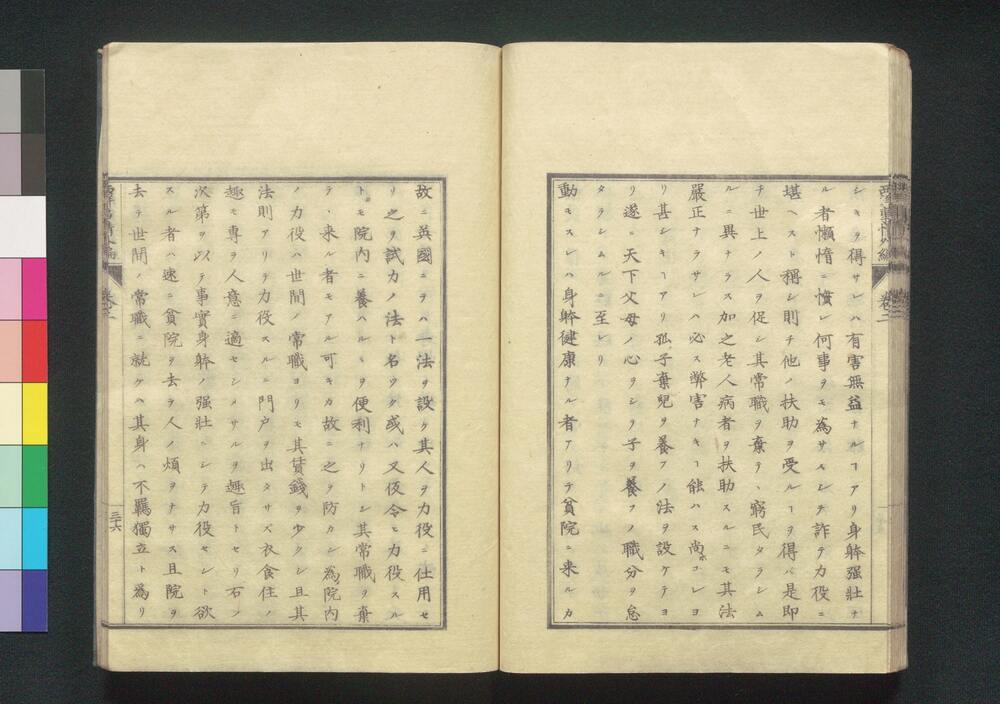 シキヲ得サレハ有害無益ナルヿアリ身躰强壯ナ
ル者懶惰ニ慣レ何事ヲモ為サスシテ詐テ力役ニ
堪ヘスト稱シ則チ他ノ扶助ヲ受ルヿヲ得バ是即
チ世上ノ人ヲ促シ其常職ヲ棄テ、窮民タラシム
ルニ異ナラス加之老人病者ヲ扶助スルニモ其法
嚴正ナラサレハ必ス弊害ナキヿ能ハス尚コレヨ
リ甚シキヿアリ孤子棄兒ヲ養フノ法ヲ設ケテヨ
リ遂ニ天下父母ノ心ヲシテ子ヲ養フノ職分ヲ怠
タラシムルニ至レリ
動モスレハ身躰健康ナル者アリテ貧院ニ来ルカ
故ニ英國ニテハ一法ヲ設ケ其人ヲ力役ニ仕用セ
リ之ヲ試力ノ法ト名ク或ハ又仮令ヒ力役スル
トモ院内ニ養ハルヽヲ便利ナリトシ其常職ヲ棄
テ、来ル者モアル可キカ故ニ之ヲ防カン為院内
ノ力役ハ世間ノ常職ヨリモ其賃錢ヲ少クシ且其
法則アリテ力役スルニ門戸ヲ出タサズ衣食住ノ
趣モ専ヲ人意ニ適セシメサルヲ趣旨トセリ右ノ
次第ヲ以テ事實身躰ノ强壯ニシテ力役セント欲
スル者ハ速ニ貧院ヲ去テ人ノ煩ヲナサス且院ヲ
去テ世間ノ常職ニ就ケハ其身ハ不羈獨立ト為リ
卷之二
三十六